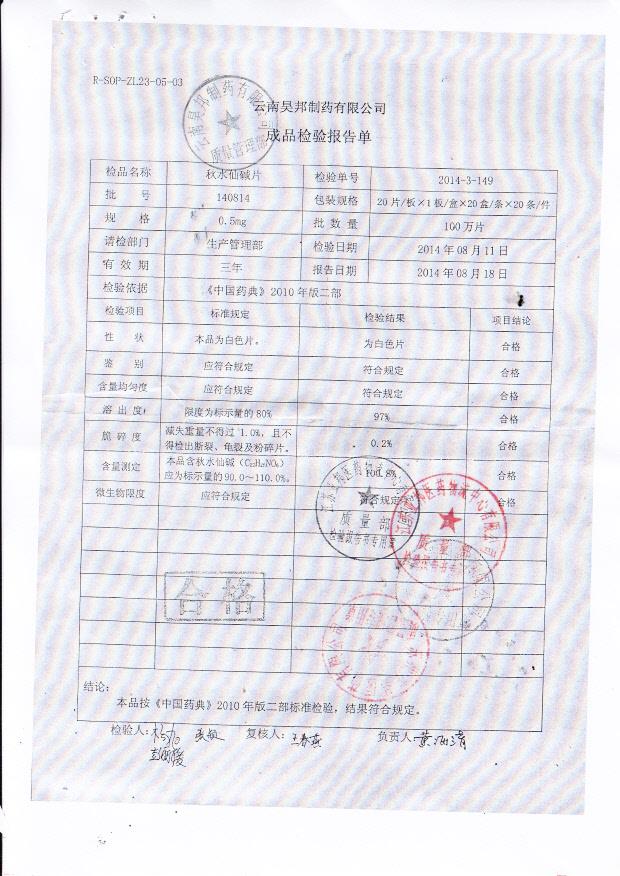 R-SOP-ZL23-05-03
云南昊邦制药有限公司
成品检验报告单
云南昊邦制药有限公司
质量管理部
检品名称 秋水仙碱片 检验单号 2014-3-149
批 号 140814 包装规格 20片/板×1板/盒×20盒/条×20条/件
规 格 0.5mg 批数量 100万片
请检部门 生产管理部 检验日期 2014年08月11日
有效期 三年 报告日期 2014年08月18日
检验依据 《中国药典》2010年版二部
检验项目 标准规定 检验结果 项目结论
性 状 本品为白色片。 为白色片 合格
鉴 别 应符合规定 符合规定 合格
含量均匀度 应符合规定 符合规定 合格
溶出度 限度为标示量的80% 97% 合格
脆碎度 减失重量不得过1.0%,且不 0.2% 合格
得检出断裂、龟裂及粉碎片。
含量测定 本品含秋水仙碱(C₂₂H₂₅NO₆) 100.8% 合格
应为标示量的90.0~110.0%。
微生物限度 应符合规定 符合规定 合格
质量部
检验报告书专用章
医药物流中心有限公司
质量部
合格
结论:
本品按《中国药典》2010年版二部标准检验,结果符合规定。
检验人: 复核人:王春燕 负责人:黄